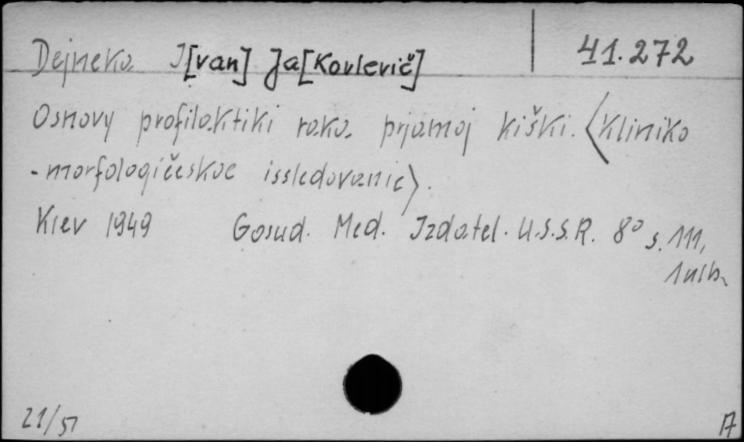 Dejneka I[van] Ja[kovlevič] 41.272
Osnovy profilaktiki raka prjamoj kiški. <Kliniko
-morfologičeskoe issledovanie>.
Kiev 1949 Gosud. Med. Izdatel. U.S.S.R. 8° s. 111,
21/51 A